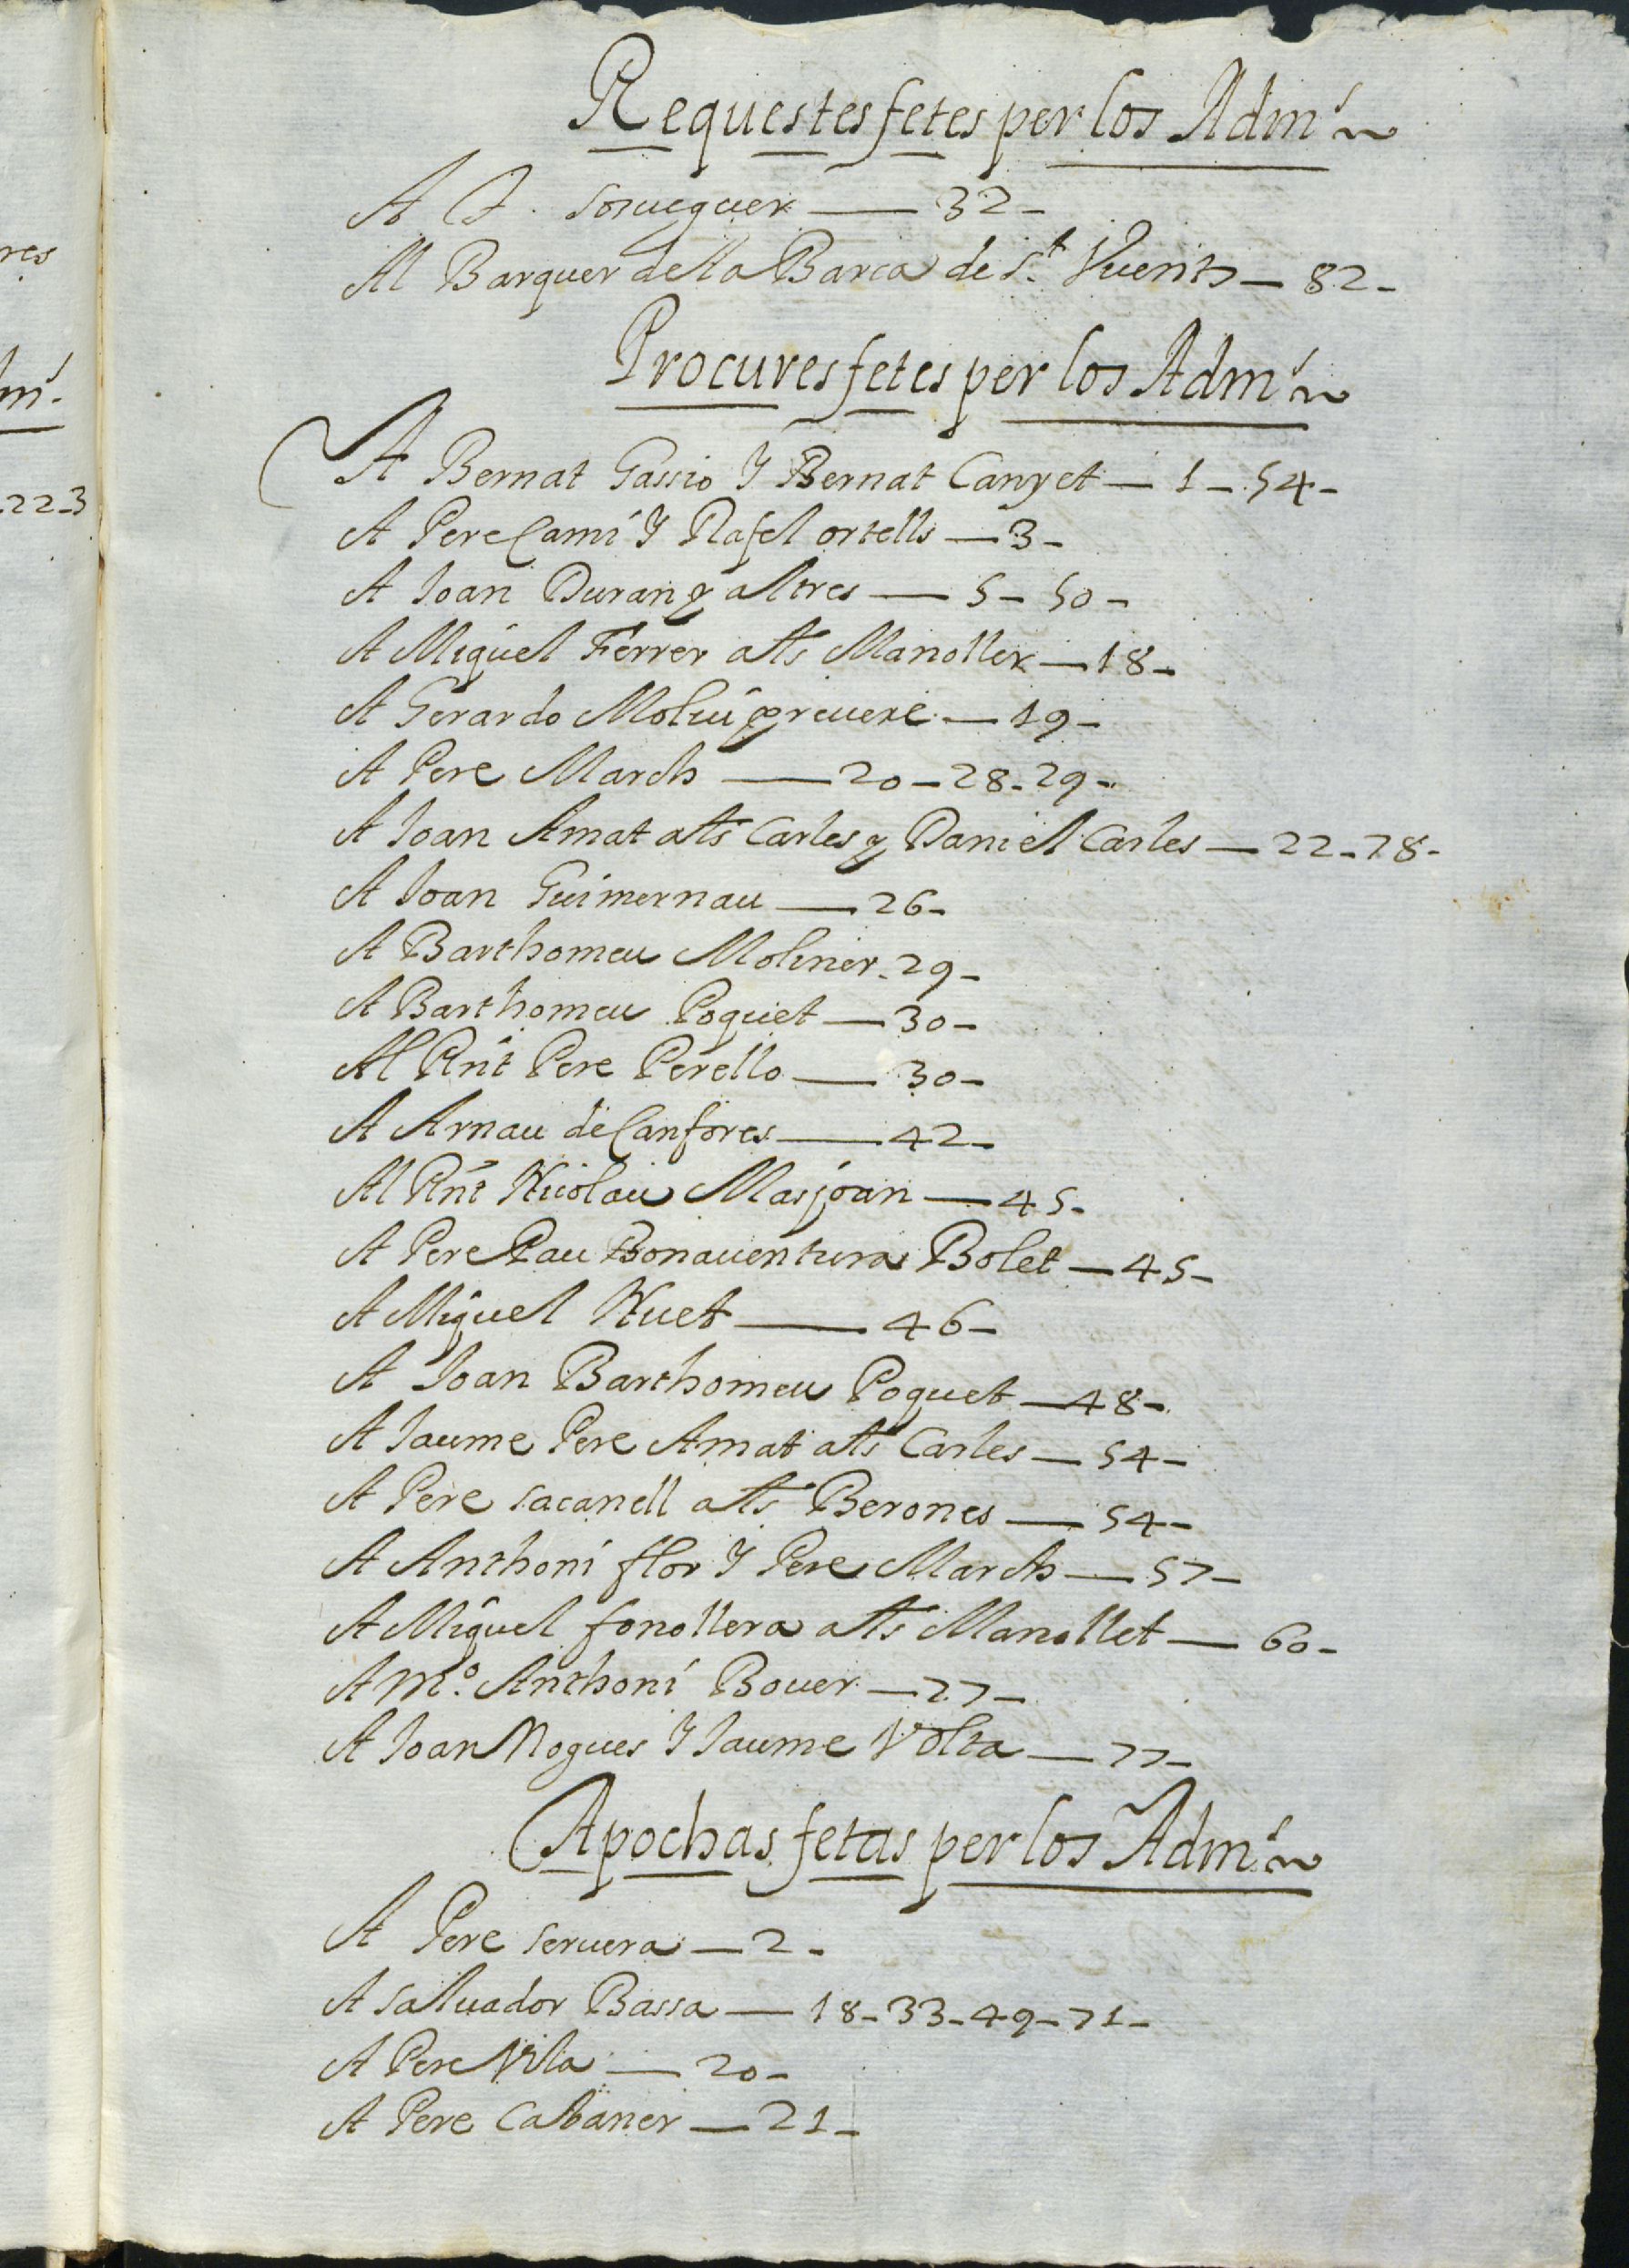 Requestes fetes per los Adm.
A P. soruguer — 32 -
Al Barquer de la Barca de St. Vicents — 82 -
Procures fetes per los Adm.
A Bernat Gassio Y Bernat Canyet — 1 - 54 -
A Pere Cami Y Rafel ortells — 3 -
A Joan Duran y altres — 5 - 50 -
A Miquel Ferrer als Manoller — 18 -
A Gerardo Moluu prevere — 19 -
A Pere March — 20 - 28 - 29 -
A Joan Amat als Carles y Daniel Carles — 22 - 78 -
A Joan Guimernau — 26 -
A Barthomeu Moliner - 29 -
A Barthomeu Poquet — 30 -
Al Rnt Pere Perello — 30 -
A Arnau de Canfores — 42 -
Al Rnt Nicolau Masjoan — 45 -
A Pere Pau Bonauentura Bolet — 45 -
A Miquel Nuet — 46 -
A Joan Barthomeu Poquet — 48 -
A Jaume Pere Amat als Carles — 54 -
A Pere sacanell als Berones — 54 -
A Anthoni flor Y Pere March — 57 -
A Miquel fonollera als Manollet — 60 -
A Mo. Anthoni Bouer — 77 -
A Joan Nogues Y Jaume Volta — 77 -
Apochas fetas per los Adm.
A Pere seruera — 2 -
A saluador Bassa — 18 - 33 - 49 - 71 -
A Pere Vila — 20 -
A Pere Cabaner — 21 -
res
m.
22 - 3